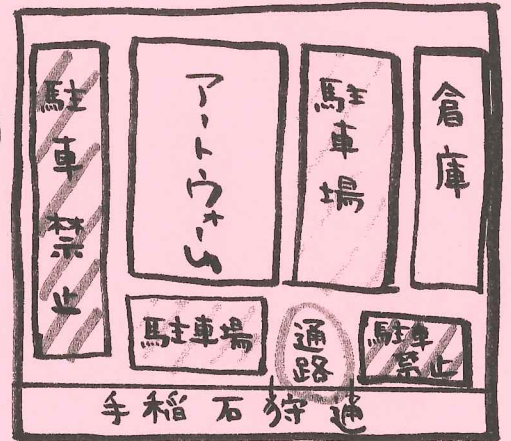 駐車禁止
アートウォーム
駐車場
倉庫
駐車場
通路
駐車
禁止
手稲石狩通